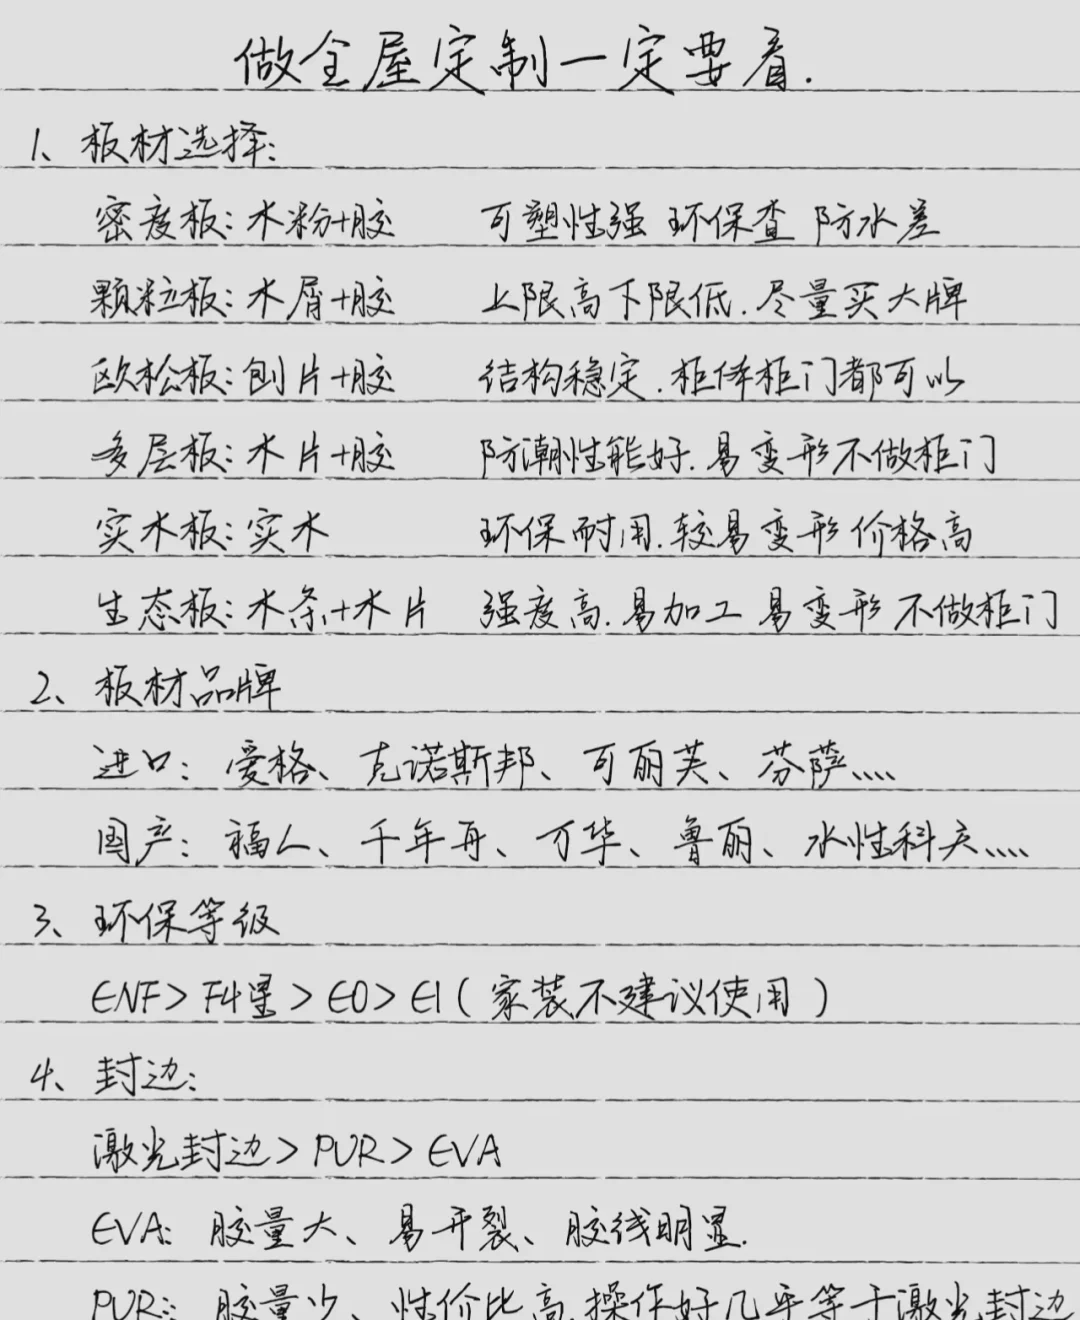 做全屋定制一定要看.
1、板材选择:
密度板:木粉+胶 可塑性强 环保查 防水差
颗粒板:木屑+胶 上限高下限低.尽量买大牌
欧松板:刨片+胶 结构稳定.柜体柜门都可以
多层板:木片+胶 防潮性能好.易变形不做柜门
实木板:实木 环保耐用.较易变形价格高
生态板:木条+木片 强度高.易加工易变形不做柜门
2、板材品牌
进口:爱格、克诺斯邦、可丽芙、芬萨....
国产:福人、千年舟、万华、鲁丽、水性科天....
3、环保等级
ENF>F4星>E0>E1(家装不建议使用)
4、封边:
激光封边>PUR>EVA
EVA:胶量大、易开裂、胶线明显.
PUR:胶量少、性价比高.操作好几乎等于激光封边